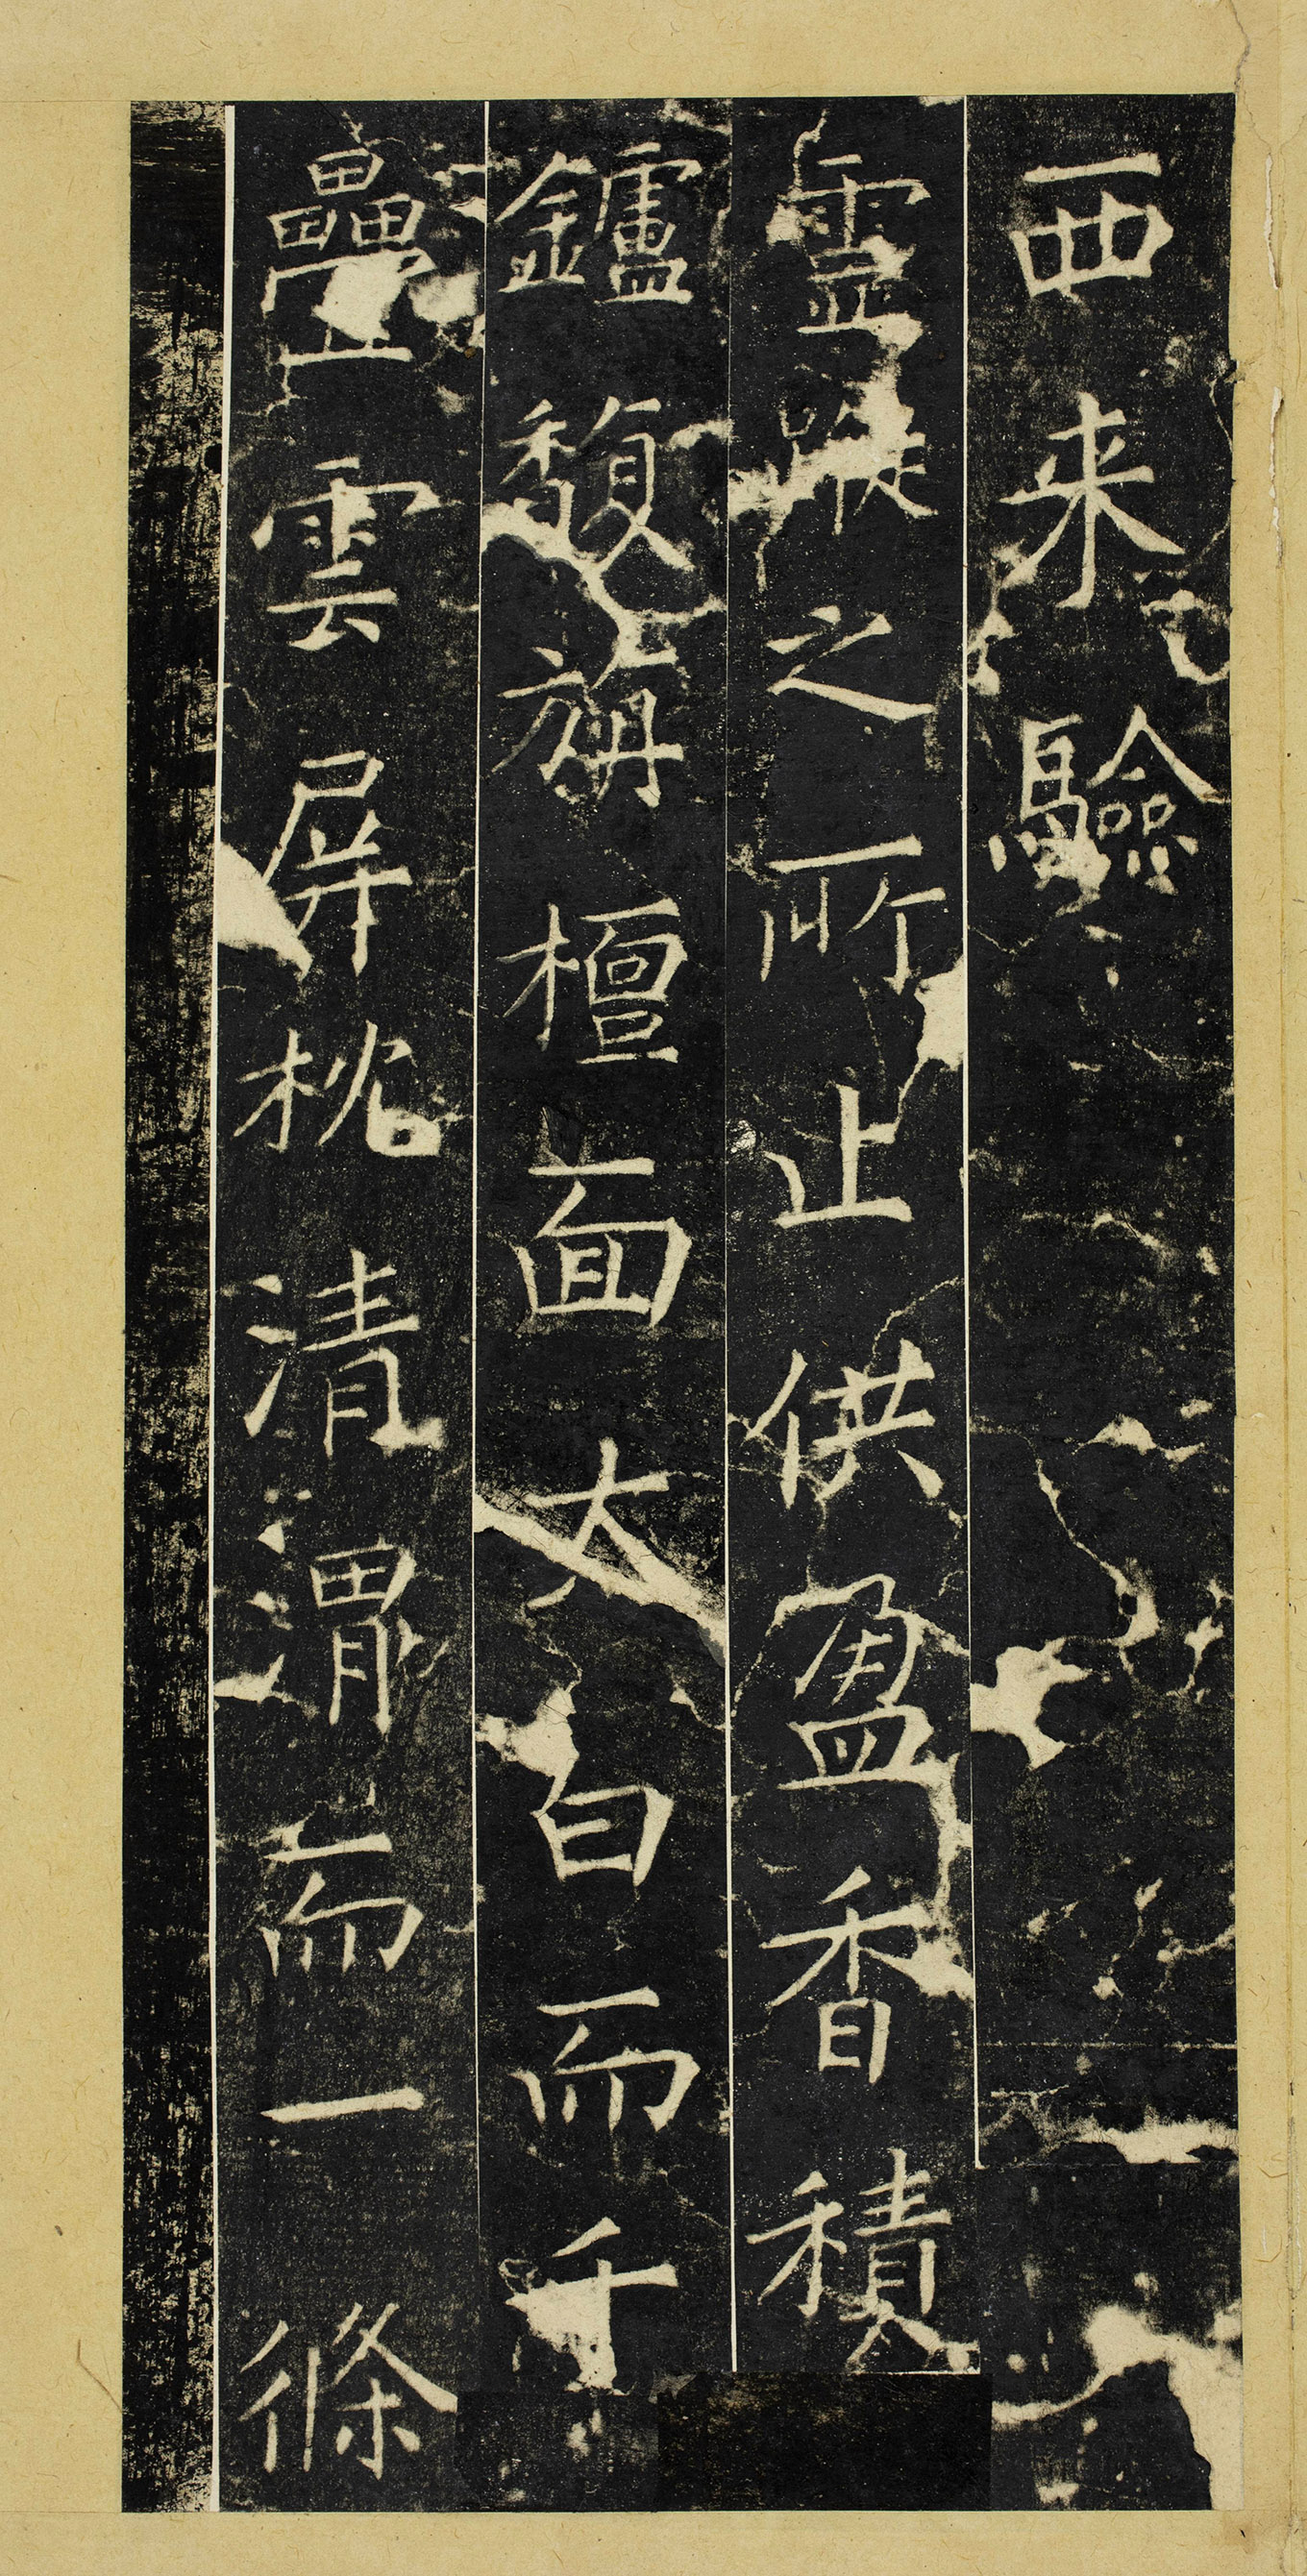 西来驗
靈蹤之所止供盈香積
鑪馥旃檀面太白而千
疊雲屏枕清渭而一
條